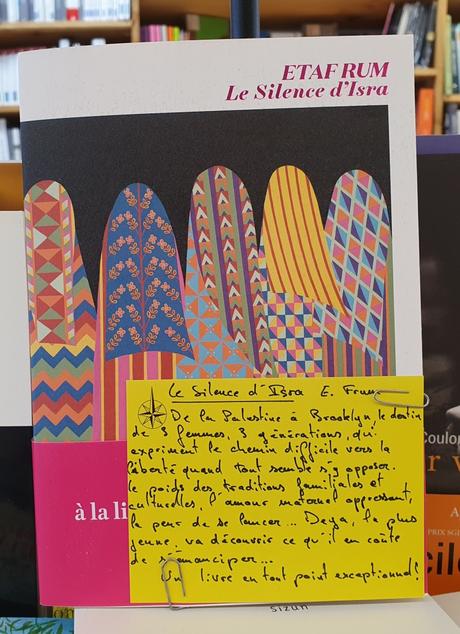 ETAF RUM
Le Silence d'Isra
Le Silence d'Isra E. Frum
De la Palestine à Brooklyn, le destin
de 3 femmes, 3 générations, qui
expriment le chemin difficile vers la
liberté quand tout semble s'y opposer.
Le poids des traditions familiales et
culturelles, l'amour maternel oppressant,
la peur de se lancer... Deya, la plus
jeune, va découvrir ce qu'il en coûte
de s'émanciper...
Un livre en tout point exceptionnel!
à la li
sizun
Coulon
PRIX SGDL